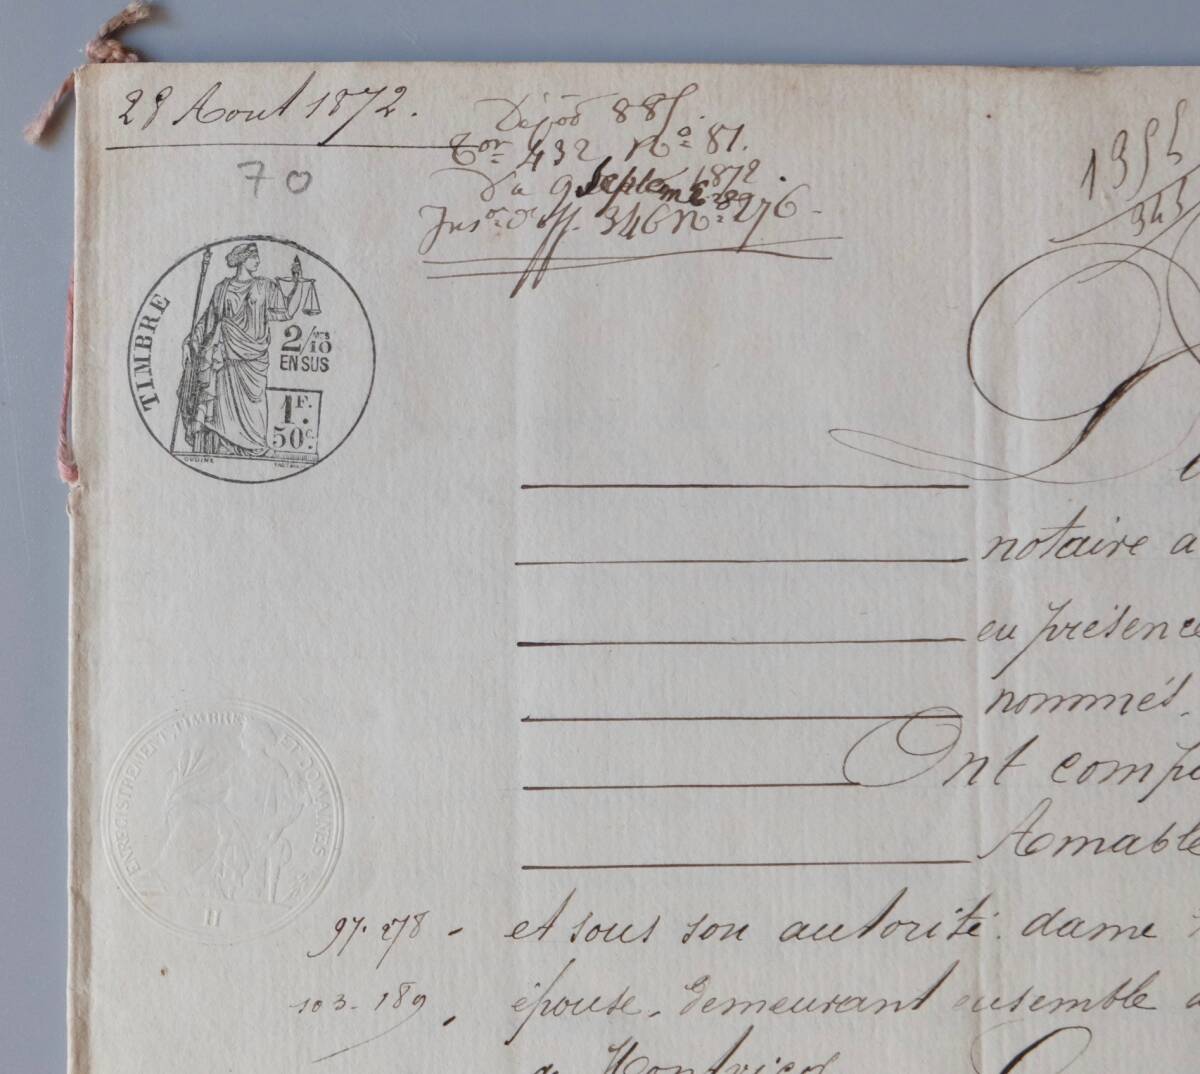 29 Aout 1872.
Dépôt 885.
Con 432 No 81.
Du 9 Septembre 1872
Ins on off. 346 No 276
1355
343
70
TIMBRE
2/10
EN SUS
1F.
50c.
OUDINE
notaire a
en présence
nommés.
Ont comp
Amable
ENREGISTREMENT, TIMBRE ET DOMAINES
97. 278 - et sous son autorité. dame
103. 189. épouse, demeurant ensemble
a Montricof